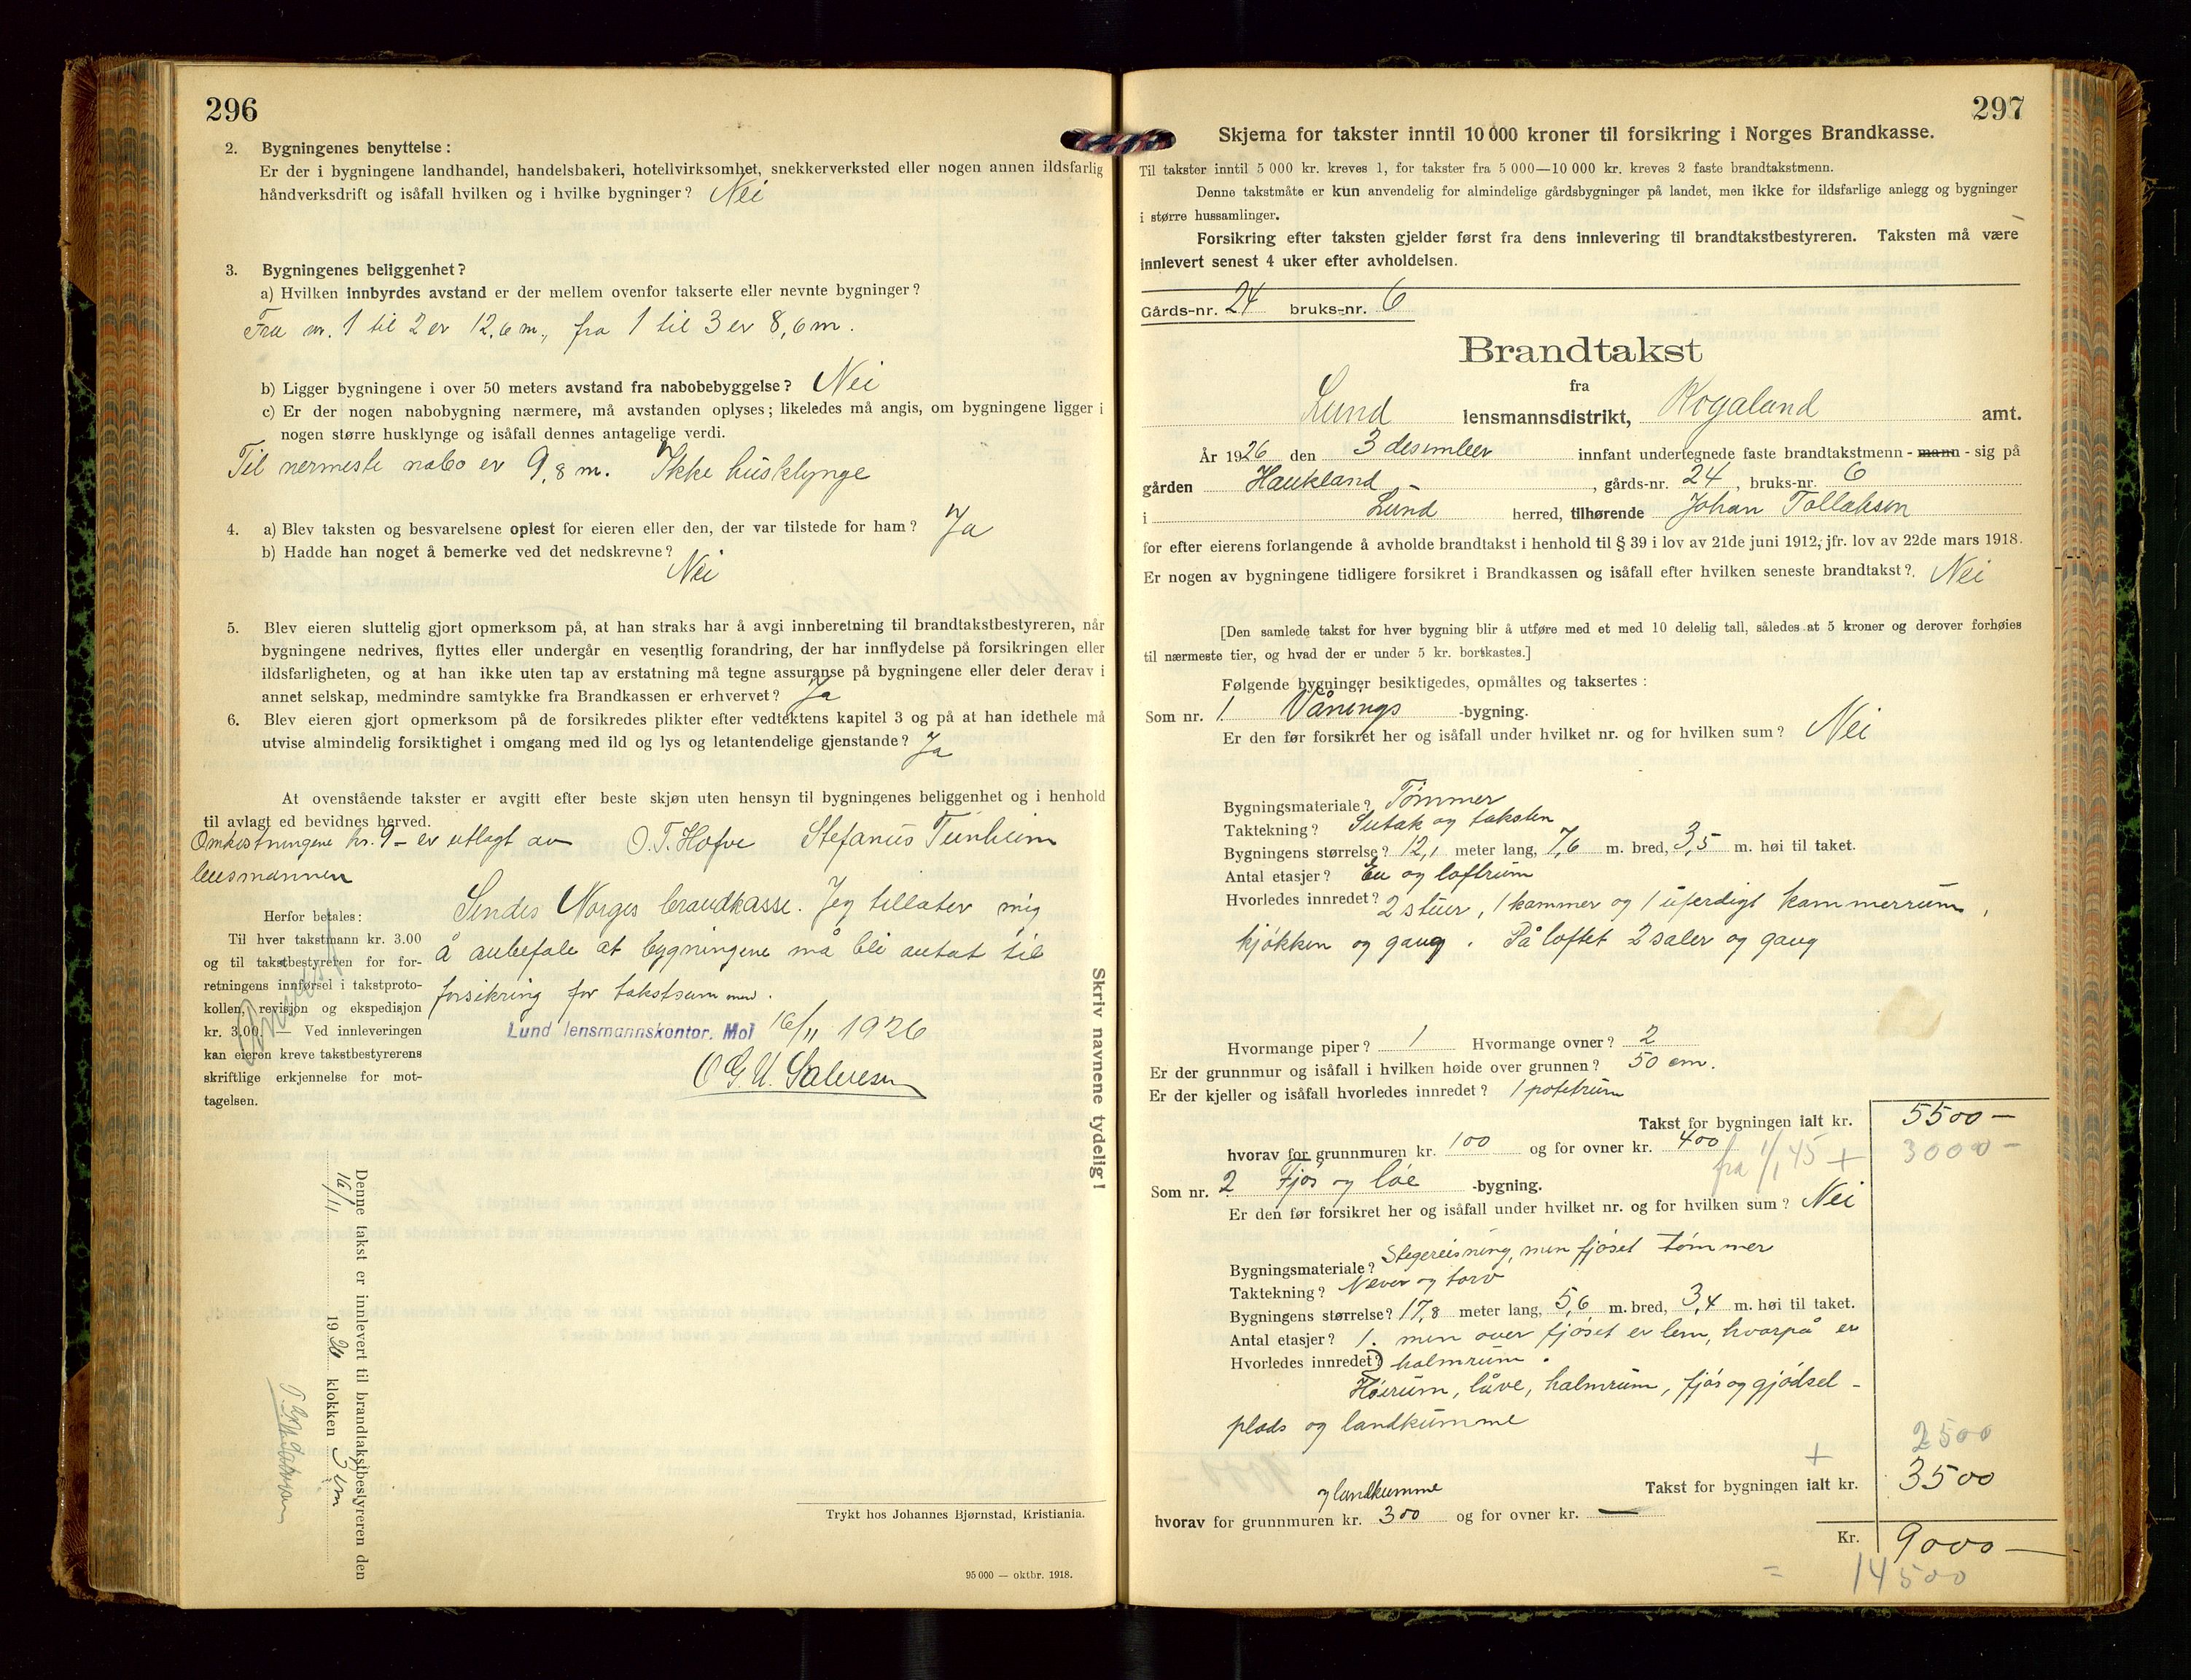 296
2. Bygningenes benyttelse:
Er der i bygningene landhandel, handelsbakeri, hotellvirksomhet, snekkerverksted eller nogen annen ildsfarlig
håndverksdrift og isåfall hvilken og i hvilke bygninger? Nei
3. Bygningenes beliggenhet?
a) Hvilken innbyrdes avstand er der mellem ovenfor takserte eller nevnte bygninger?
Fra nr. 1 til 2 er 12,6 m., fra 1 til 3 er 8,6 m.
b) Ligger bygningene i over 50 meters avstand fra nabobebyggelse? Nei
c) Er der nogen nabobygning nærmere, må avstanden oplyses; likeledes må angis, om bygningene ligger i
nogen større husklynge og isåfall dennes antagelige verdi.
Til nermeste nabo er 9,8 m. Ikke husklynge
4. a) Blev taksten og besvarelsene oplest for eieren eller den, der var tilstede for ham? Ja
b) Hadde han noget å bemerke ved det nedskrevne?
Nei
5. Blev eieren sluttelig gjort opmerksom på, at han straks har å avgi innberetning til brandtakstbestyreren, når
bygningene nedrives, flyttes eller undergår en vesentlig forandring, der har innflydelse på forsikringen eller
ildsfarligheten, og at han ikke uten tap av erstatning må tegne assuranse på bygningene eller deler derav i
annet selskap, medmindre samtykke fra Brandkassen er erhvervet? Ja
6. Blev eieren gjort opmerksom på de forsikredes plikter efter vedtektens kapitel 3 og på at han idethele må
utvise almindelig forsiktighet i omgang med ild og lys og letantendelige gjenstande? Ja
At ovenstående takster er avgitt efter beste skjøn uten hensyn til bygningenes beliggenhet og i henhold
til avlagt ed bevidnes herved.
Omkostningene kr. 9- er utlagt av O. T. Hofve Stefanus Tunheim
lensmannen
Sendes Norges brandkasse. Jeg tillater mig
å anbefale at bygningene må bli antat til
forsikring for takstsummen.
Lund lensmannskontor, Moi 16/11 1926
O G U. Salvesen
Herfor betales:
Til hver takstmann kr. 3.00
og til takstbestyreren for for-
retningens innførsel i takstproto-
kollen, revisjon og ekspedisjon
kr. 3.00. — Ved innleveringen
kan eieren kreve takstbestyrerens
skriftlige erkjennelse for mot-
tagelsen.
Skriv navnene tydelig!
Denne takst er innlevert til brandtakstbestyreren den
16/11 1926 klokken
Trykt hos Johannes Bjørnstad, Kristiania.
95 000 — oktbr. 1918.
297
Skjema for takster inntil 10 000 kroner til forsikring i Norges Brandkasse.
Til takster inntil 5 000 kr. kreves 1, for takster fra 5 000—10 000 kr. kreves 2 faste brandtakstmenn.
Denne takstmåte er kun anvendelig for almindelige gårdsbygninger på landet, men ikke for ildsfarlige anlegg og bygninger
i større hussamlinger.
Forsikring efter taksten gjelder først fra dens innlevering til brandtakstbestyreren. Taksten må være
innlevert senest 4 uker efter avholdelsen.
Gårds-nr. 24 bruks-nr. 6
Brandtakst
fra
Lund lensmannsdistrikt, Rogaland amt.
År 1926 den 3 desember innfant undertegnede faste brandtakstmenn - mann - sig på
gården Haukland, gårds-nr. 24, bruks-nr. 6
i Lund herred, tilhørende Johan Tollaksen
for efter eierens forlangende å avholde brandtakst i henhold til § 39 i lov av 21de juni 1912, jfr. lov av 22de mars 1918.
Er nogen av bygningene tidligere forsikret i Brandkassen og isåfall efter hvilken seneste brandtakst? Nei
[Den samlede takst for hver bygning blir å utføre med et med 10 delelig tall, således at 5 kroner og derover forhøies
til nærmeste tier, og hvad der er under 5 kr. bortkastes.]
Følgende bygninger besiktigedes, opmåltes og taksertes:
Som nr. 1 Vånings -bygning.
Er den før forsikret her og isåfall under hvilket nr. og for hvilken sum? Nei
Bygningsmateriale? Tømmer
Taktekning? Sutak og taksten
Bygningens størrelse? 12,1 meter lang, 7,6 m. bred, 3,5 m. høi til taket.
Antal etasjer? En og loftrum
Hvorledes innredet? 2 stuer, 1 kammer og 1 uferdigt kammerrum,
kjøkken og gang. På loftet 2 saler og gang
Hvormange piper? 1 Hvormange ovner? 2
Er der grunnmur og isåfall i hvilken høide over grunnen? 50 cm.
Er der kjeller og isåfall hvorledes innredet? 1 potetrum
Takst for bygningen ialt kr. 5500 —
hvorav for grunnmuren kr. 100 og for ovner kr. 400
fra 1/1 45 + 3000 —
Som nr. 2 Fjøs og løe -bygning.
Er den før forsikret her og isåfall under hvilket nr. og for hvilken sum? Nei
Bygningsmateriale? Stegereisning, men fjøset tømmer
Taktekning? Never og torv
Bygningens størrelse? 17,8 meter lang, 5,6 m. bred, 3,4 m. høi til taket.
Antal etasjer? 1. men over fjøset er lem, hvorpå er
Hvorledes innredet? halmrum.
Høirum, låve, halmrum, fjøs og gjødsel-
plads og landkumme
+ 2500
Takst for bygningen ialt kr. 3500
og landkumme
hvorav for grunnmuren kr. 300 og for ovner kr. —
Kr. 9000 —
= 14500